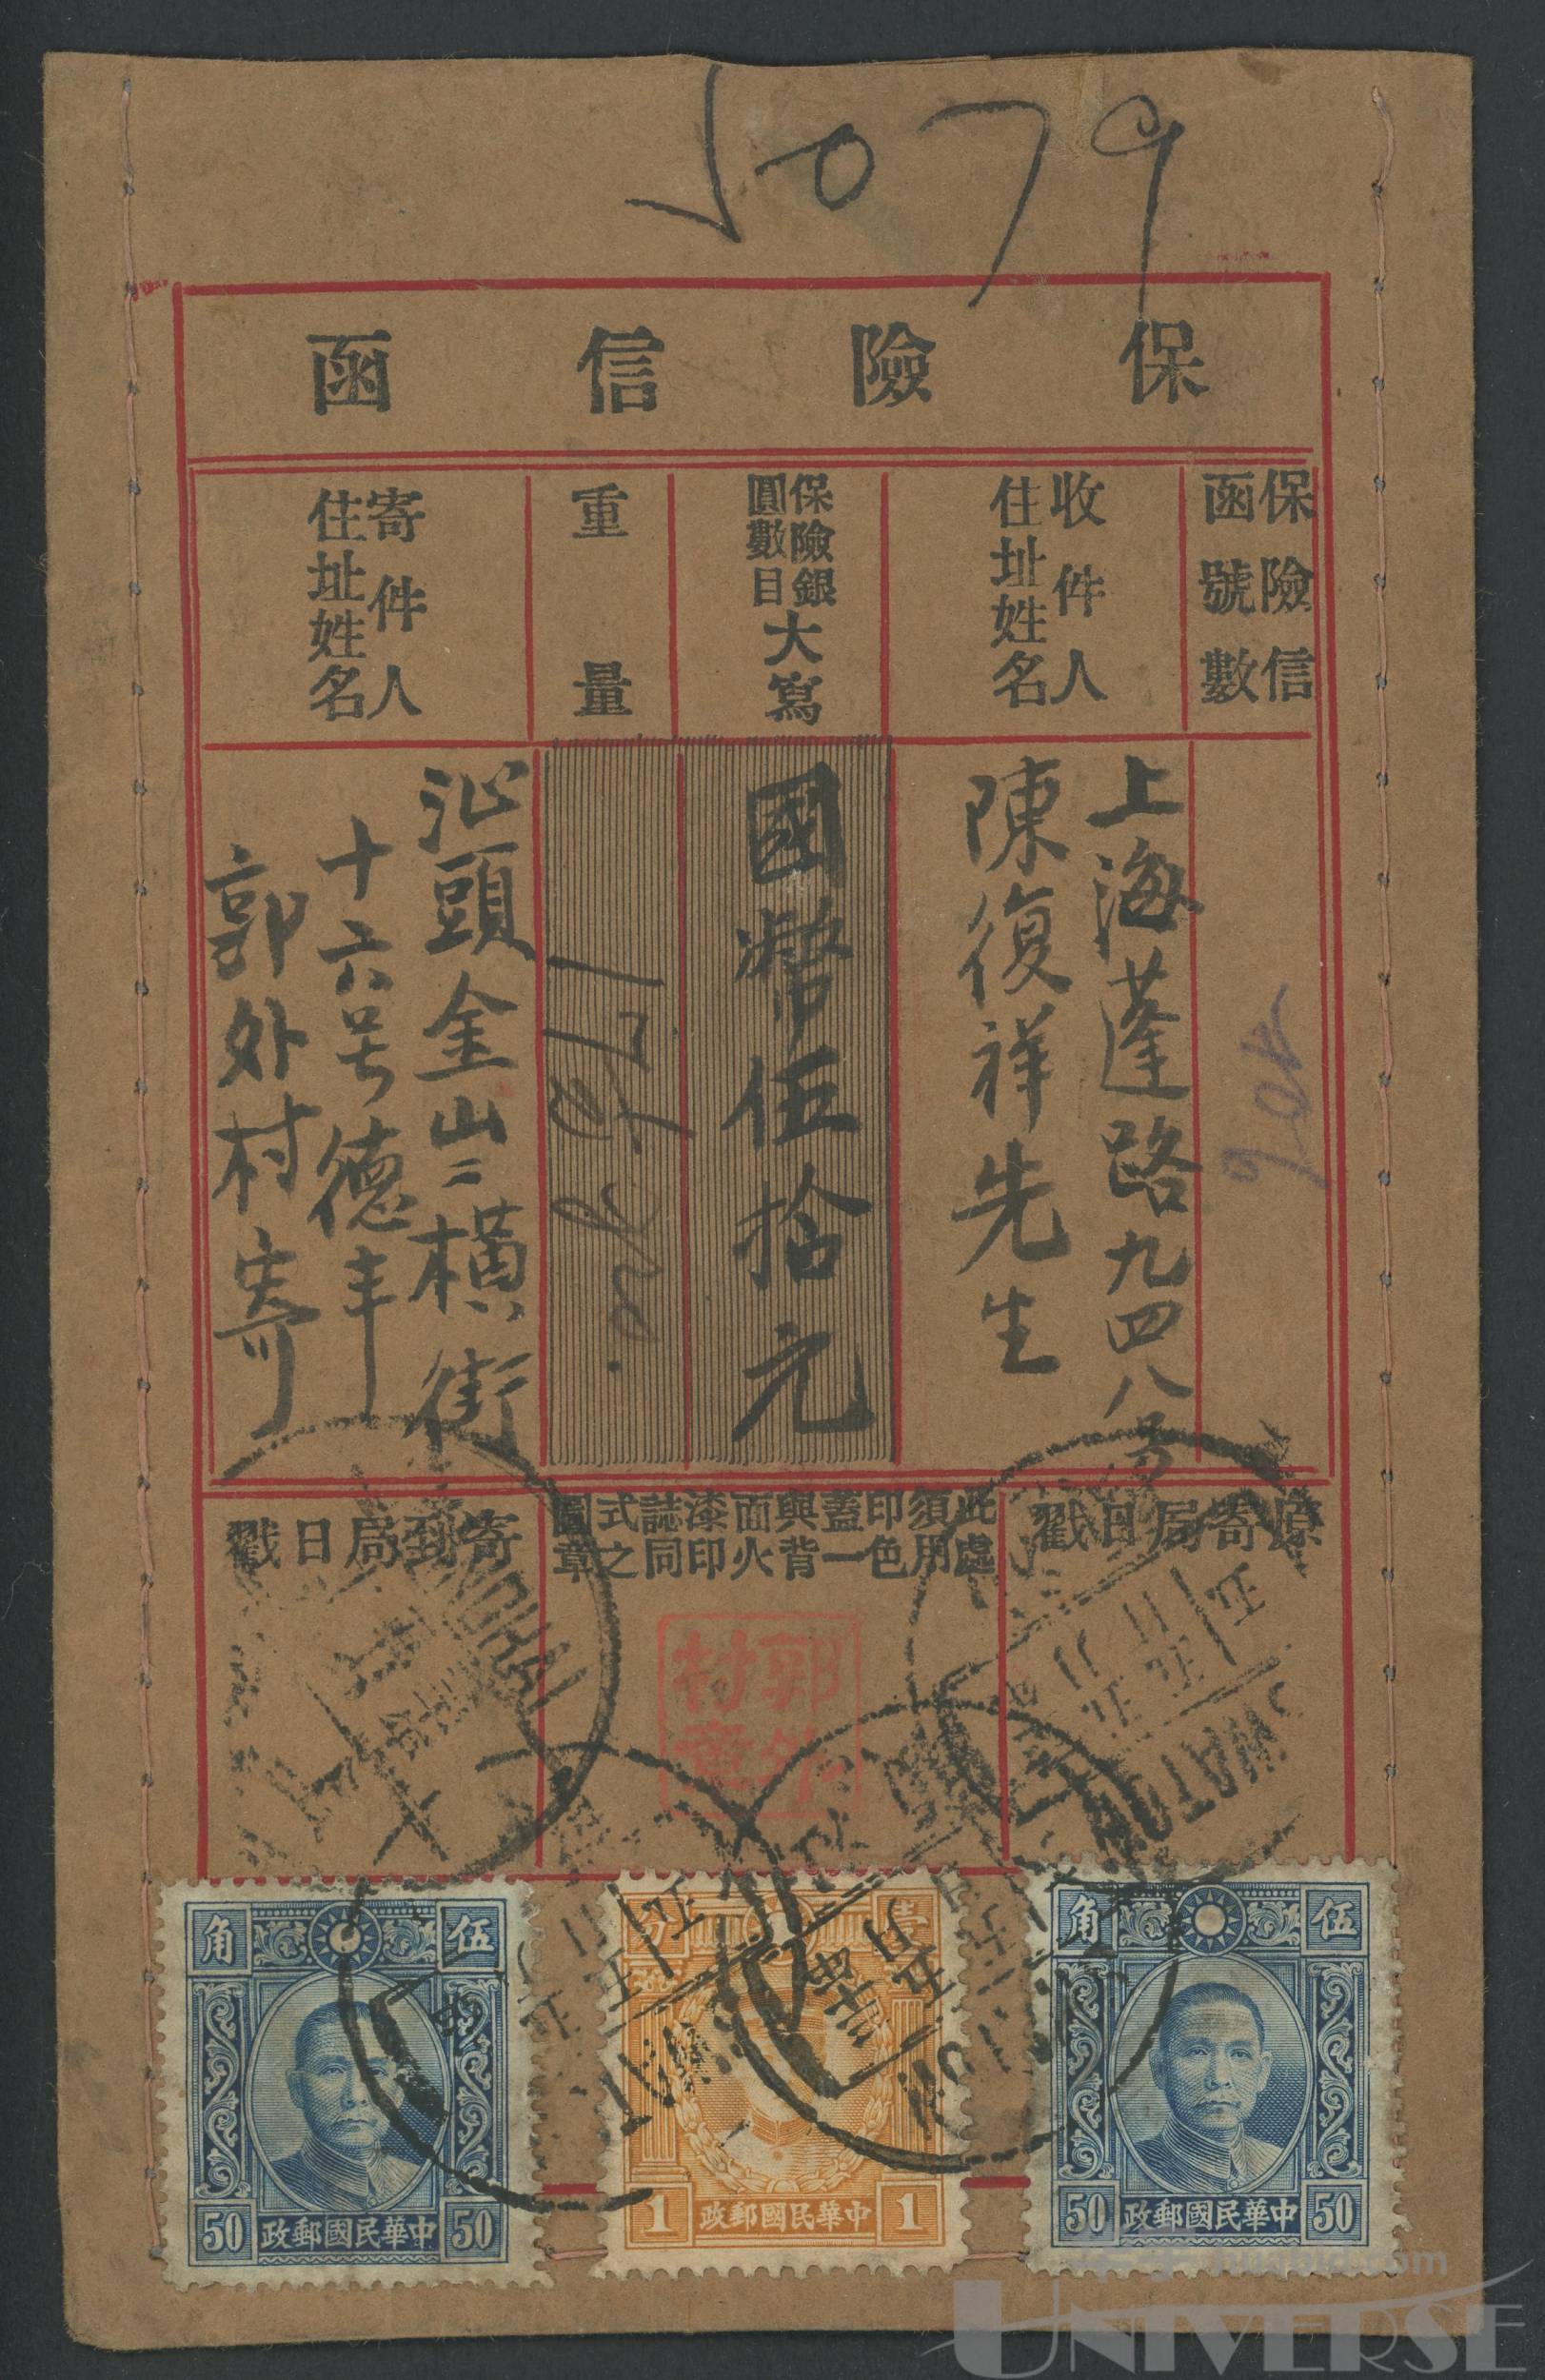 5079
保險信函
保險信函號數
收件人住址姓名
保險銀圓數目大寫
重量
寄件人住址姓名
上海蓬路九四八号
陳復祥先生
國幣伍拾元
汕頭金山二橫街
十六号德丰
郭外村寄
原寄局日戳
此處須用印色蓋一與背面火漆印誌同式之圖章
寄到局日戳
郭外村章
SWATOW
伍角
50 中華民國郵政 50
壹分
1 中華民國郵政 1
伍角
50 中華民國郵政 50
huabid.com
UNIVERSE